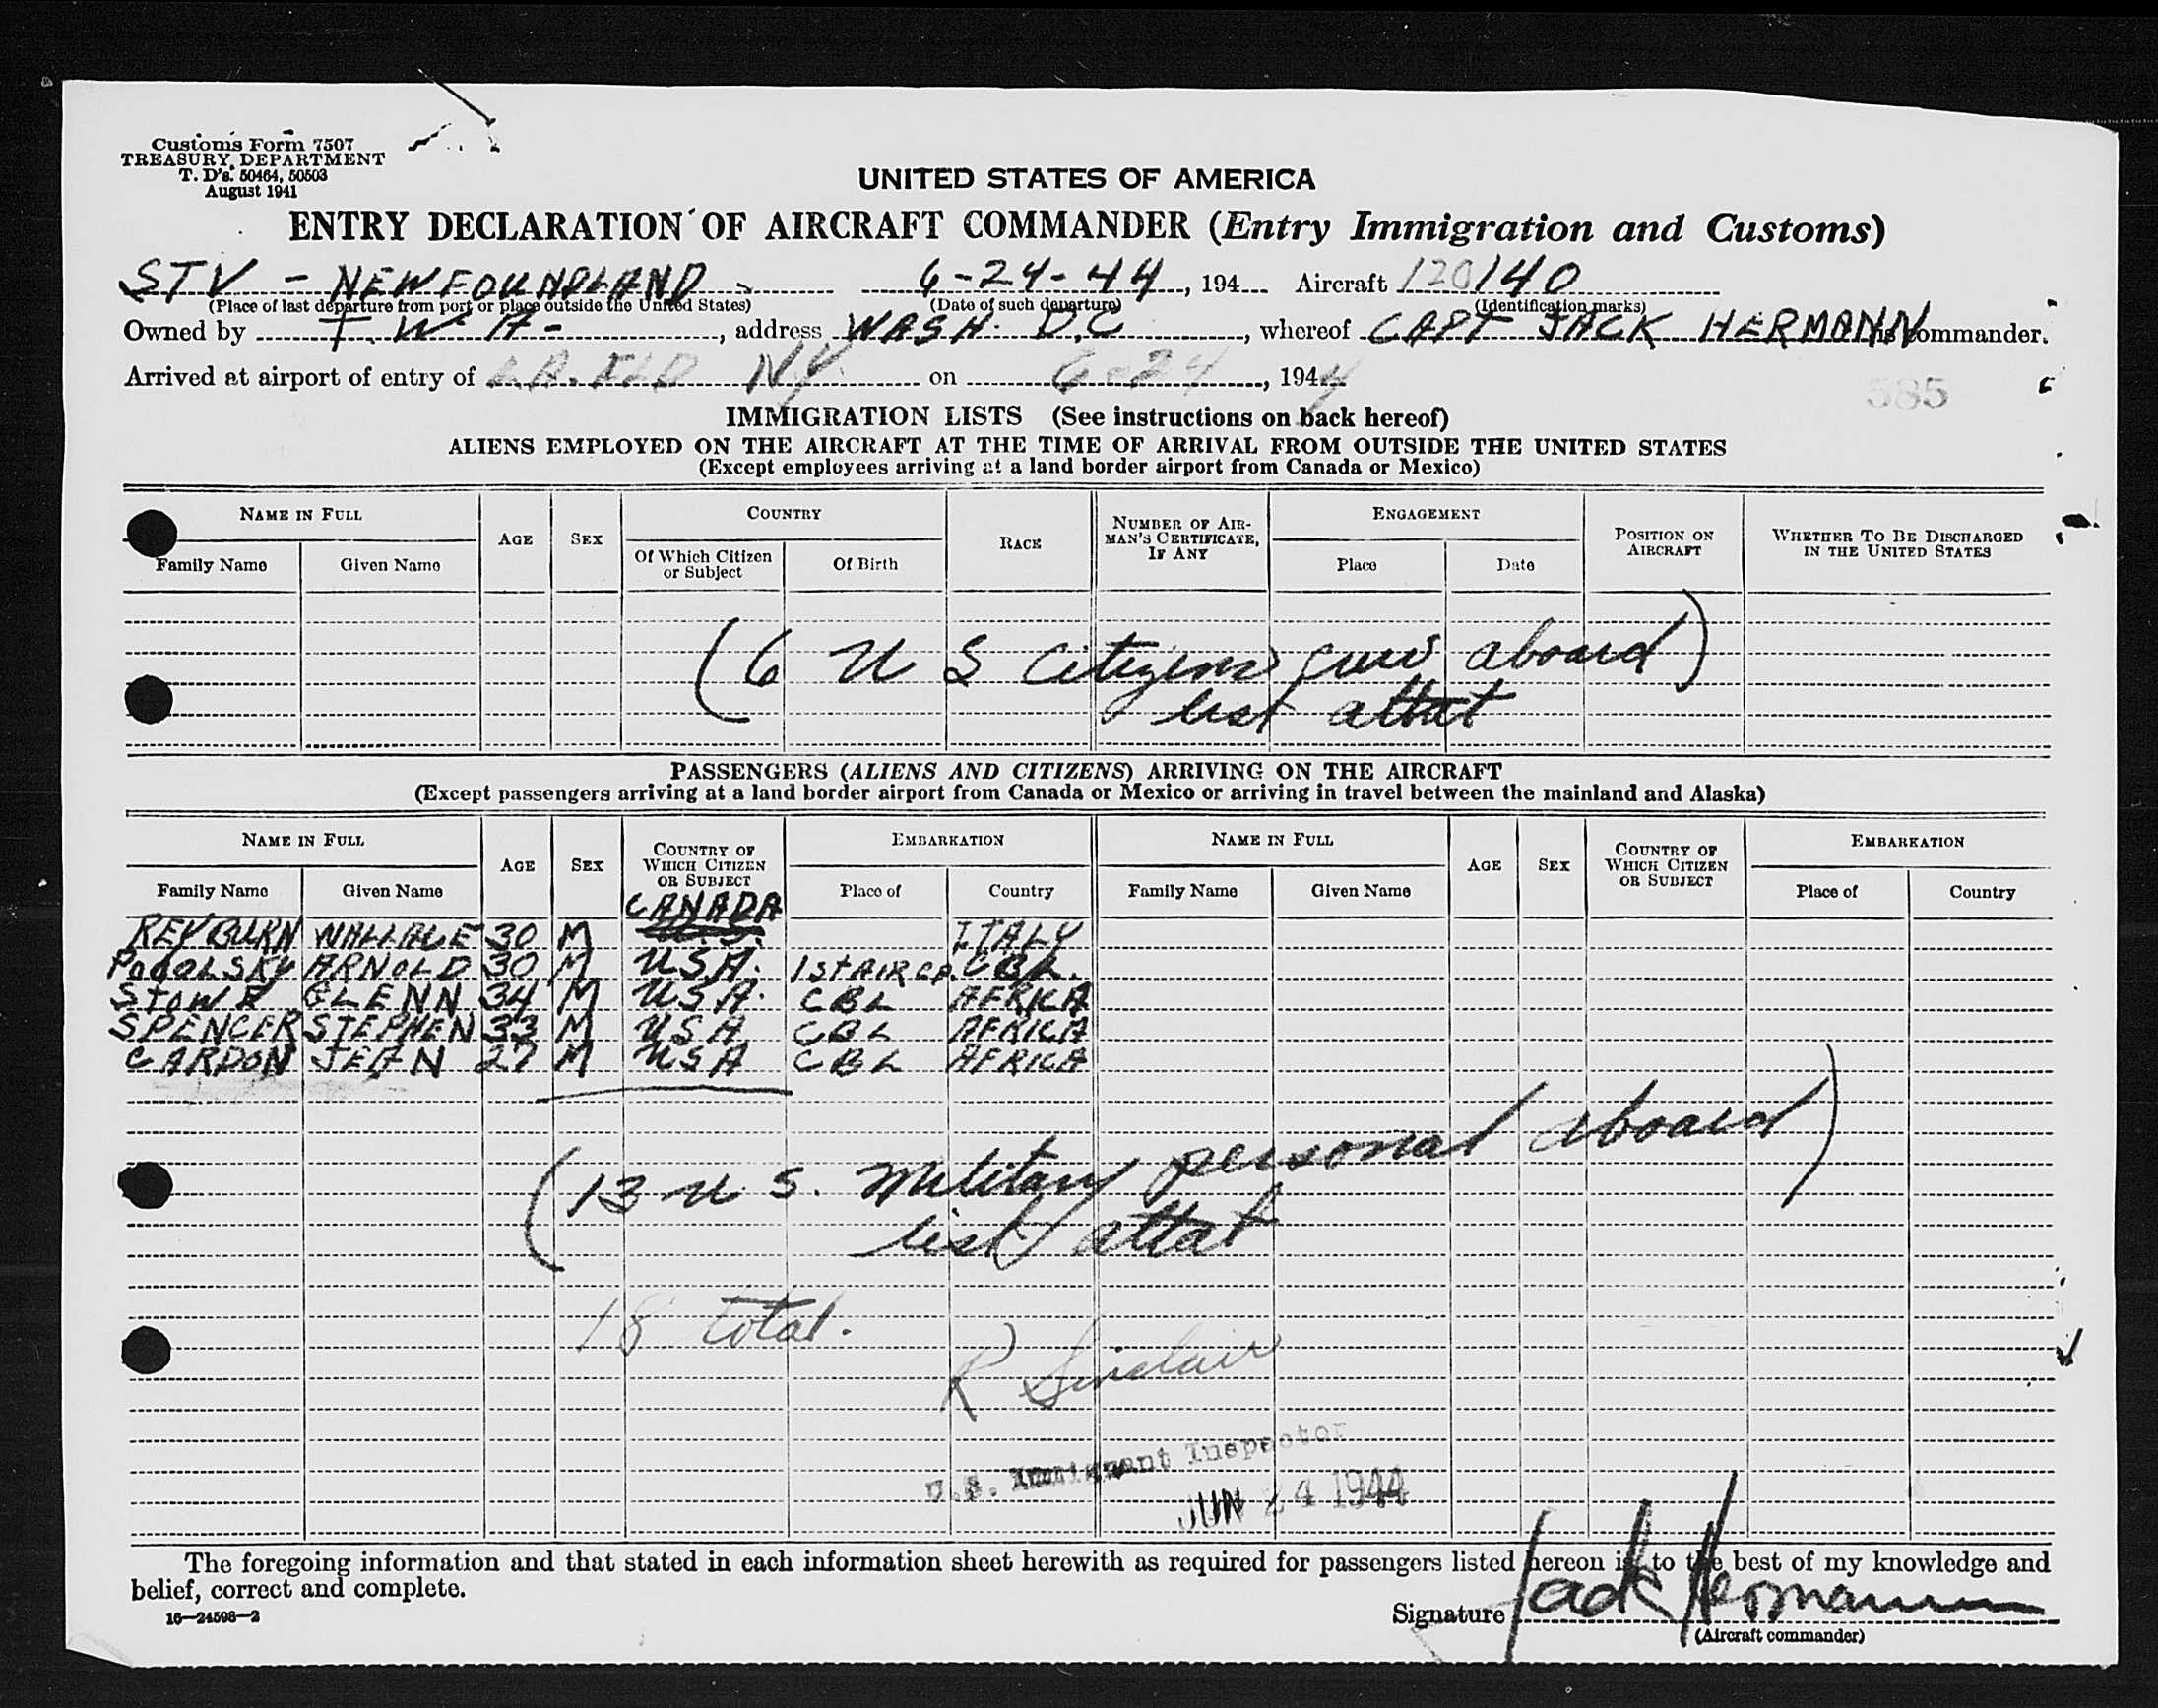 Customs Form 7507
TREASURY DEPARTMENT
T. D's. 50464, 50503
August 1941
UNITED STATES OF AMERICA
ENTRY DECLARATION OF AIRCRAFT COMMANDER (Entry Immigration and Customs)
STV - NEWFOUNDLAND 6-24-44, 194 Aircraft 120140
(Place of last departure from port or place outside the United States) (Date of such departure) (Identification marks)
Owned by T.W.A-, address WASH. D.C, whereof CAPT JACK HERMANN is commander.
Arrived at airport of entry of L.A. FLD NY on 6-24, 1944
585
IMMIGRATION LISTS (See instructions on back hereof)
ALIENS EMPLOYED ON THE AIRCRAFT AT THE TIME OF ARRIVAL FROM OUTSIDE THE UNITED STATES
(Except employees arriving at a land border airport from Canada or Mexico)
NAME IN FULL AGE SEX COUNTRY RACE NUMBER OF AIRMAN'S CERTIFICATE, IF ANY ENGAGEMENT POSITION ON AIRCRAFT WHETHER TO BE DISCHARGED IN THE UNITED STATES
Family Name Given Name Of Which Citizen or Subject Of Birth Place Date
(6 U S Citizens crew aboard)
list attat
PASSENGERS (ALIENS AND CITIZENS) ARRIVING ON THE AIRCRAFT
(Except passengers arriving at a land border airport from Canada or Mexico or arriving in travel between the mainland and Alaska)
NAME IN FULL AGE SEX COUNTRY OF WHICH CITIZEN OR SUBJECT EMBARKATION NAME IN FULL AGE SEX COUNTRY OF WHICH CITIZEN OR SUBJECT EMBARKATION
Family Name Given Name Place of Country Family Name Given Name Place of Country
CANADA
REYBURN WALLACE 30 M ITALY
PODOLSKY ARNOLD 30 M USA. 1ST AIR CP. CBL.
STOWE GLENN 34 M USA. CBL AFRICA
SPENCER STEPHEN 33 M USA CBL AFRICA
CARDON JEAN 27 M USA CBL AFRICA
(13 U S. Military personal aboard)
list attat
18 total.
R Sinclair
U.S. Immigrant Inspector
JUN 24 1944
The foregoing information and that stated in each information sheet herewith as required for passengers listed hereon is to the best of my knowledge and
belief, correct and complete.
16—24598—2
Signature Jack Hermann
(Aircraft commander)